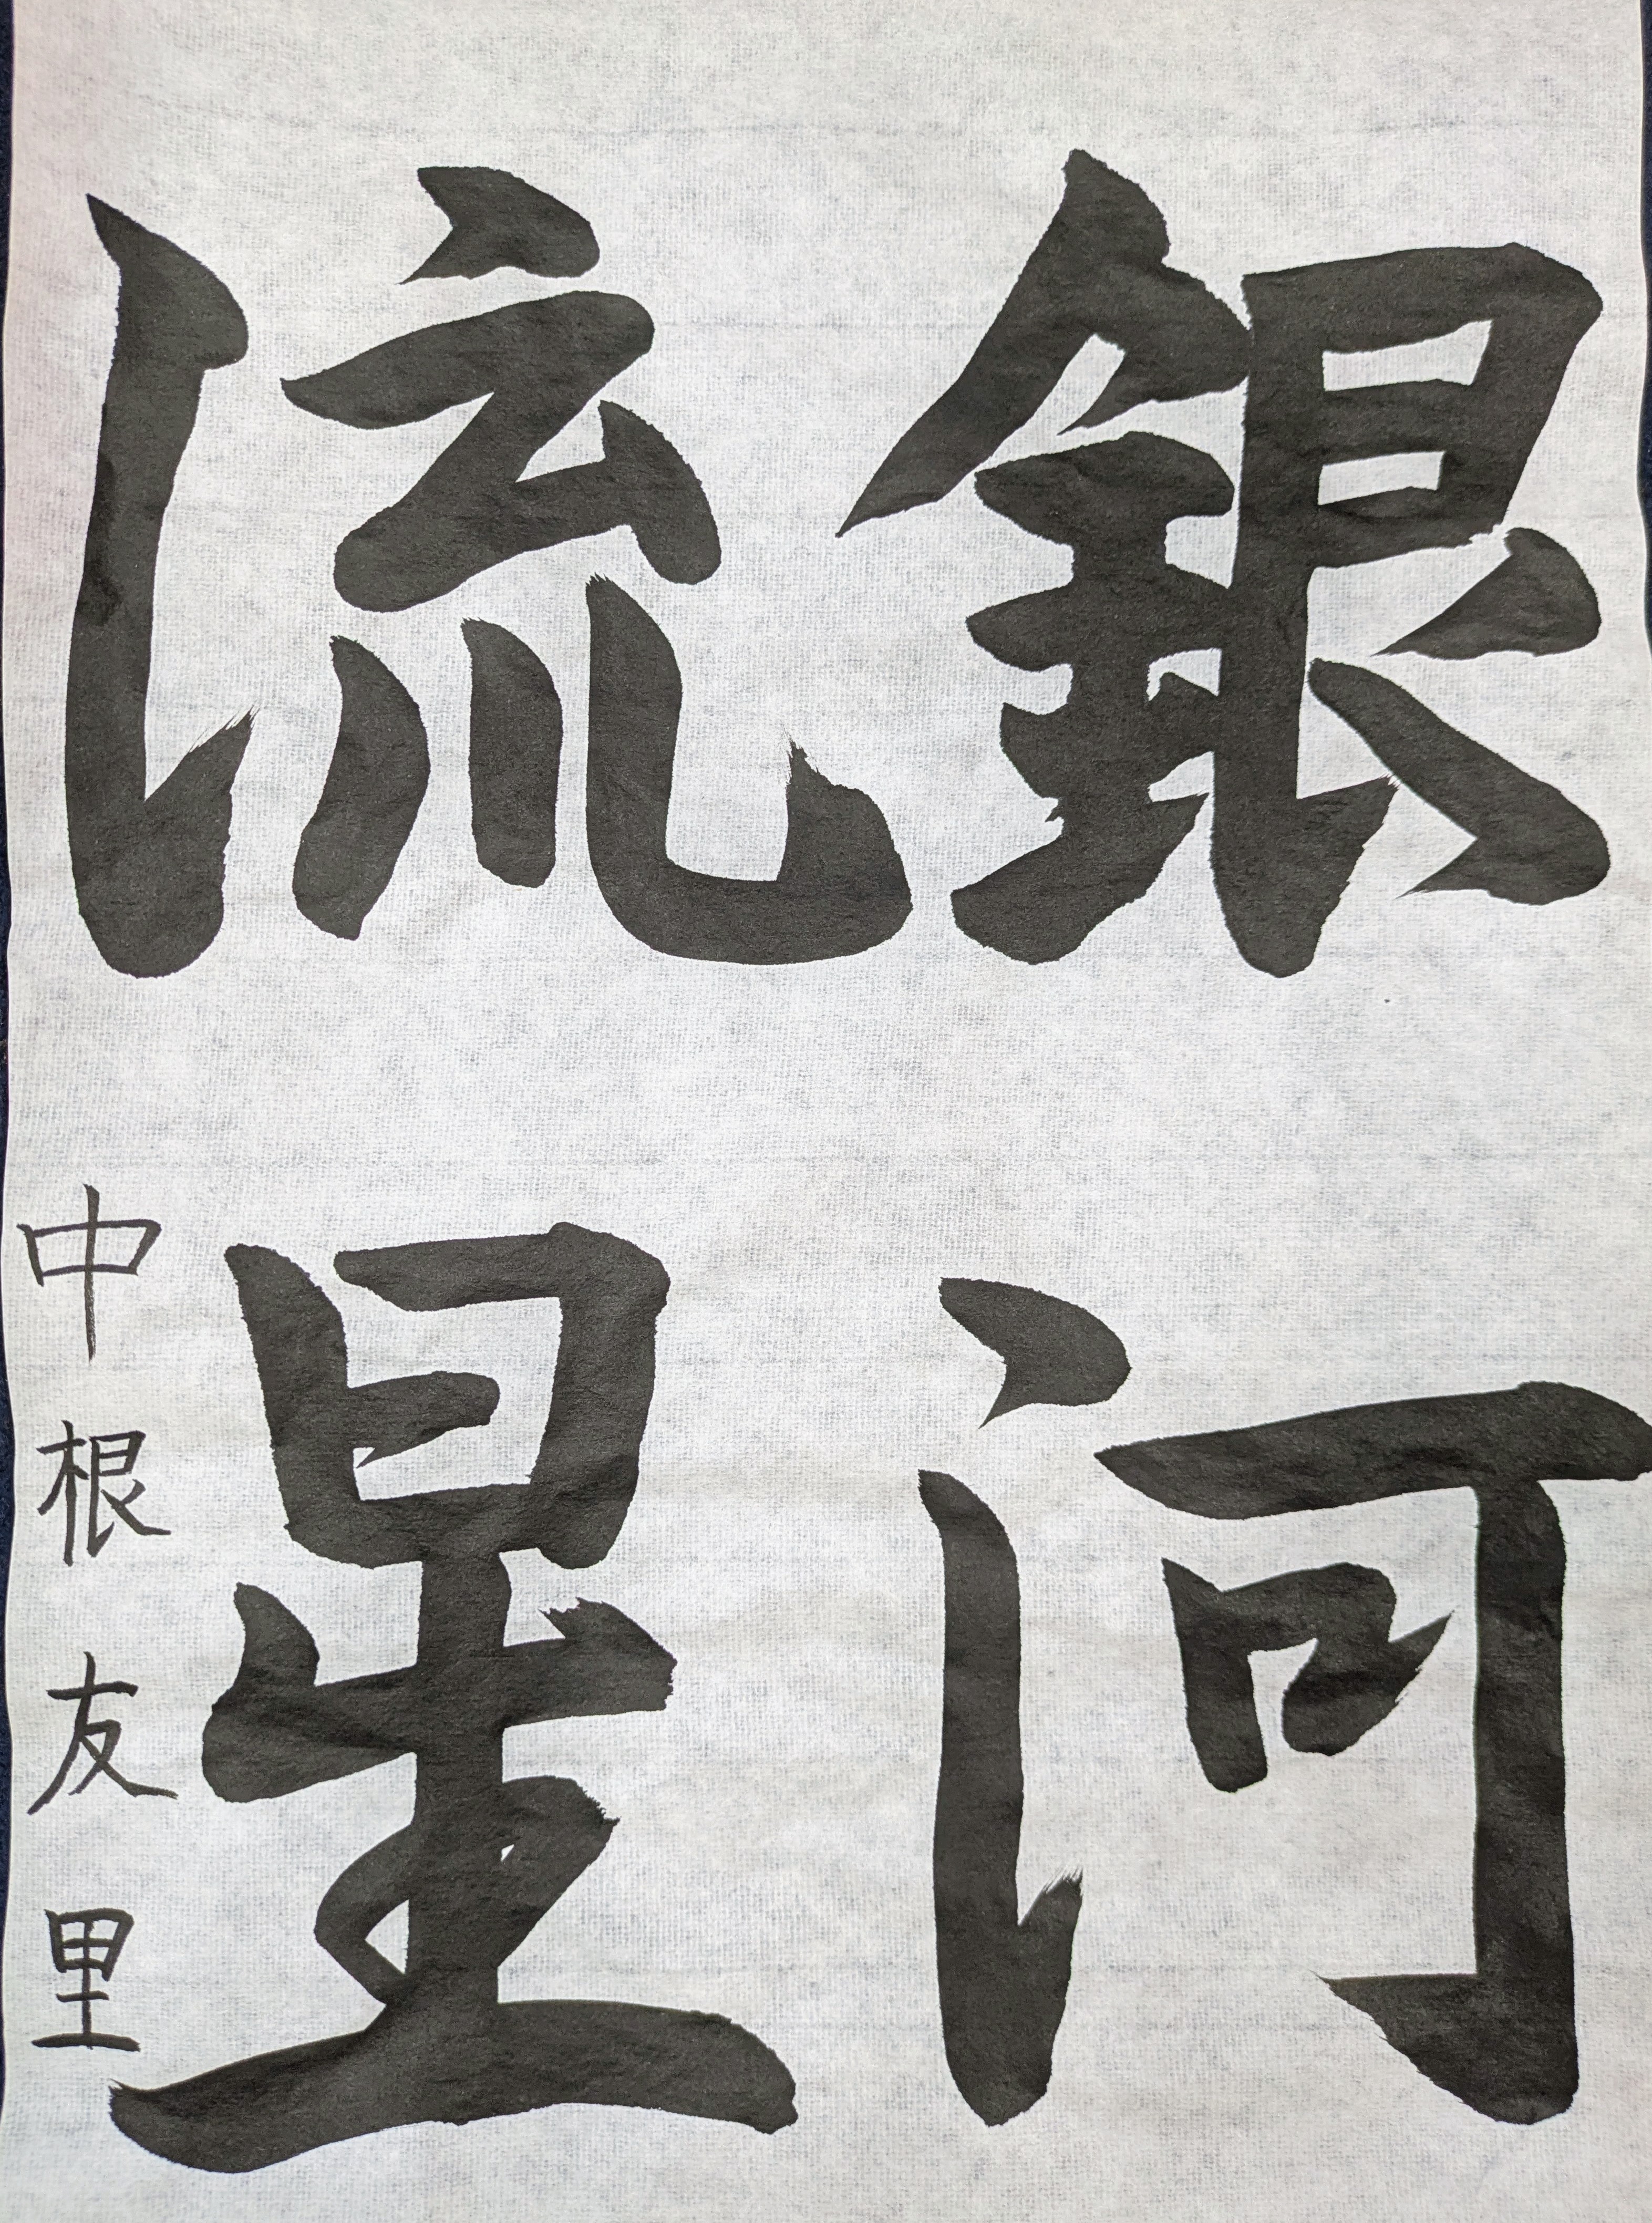 銀河
流星
中根友里